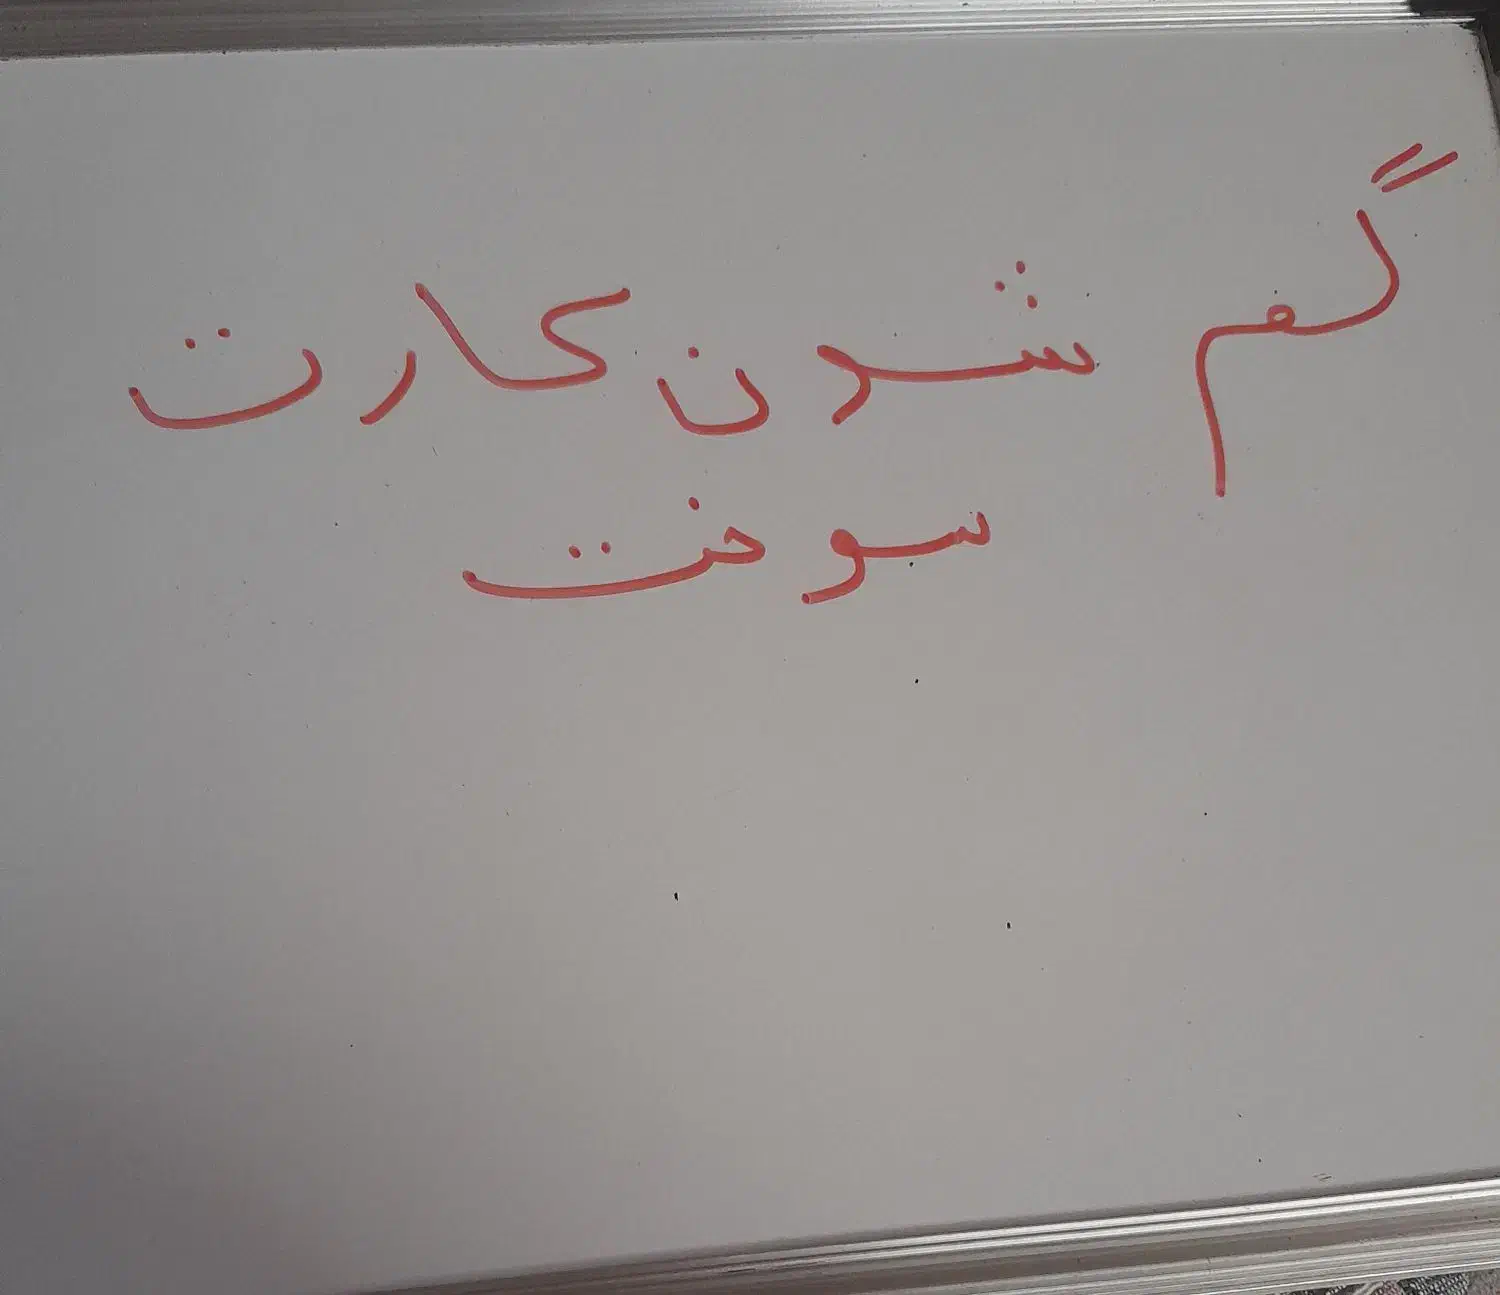 گم شون کارت
سوخت